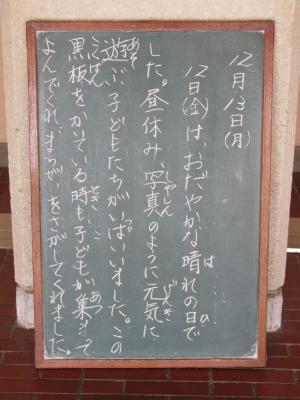 12月13日(月)
12日(金)は、おだやかな晴れの日で
した。昼休み、写真のように元気に
遊ぶ子どもたちがいっぱいいました。この
黒板をかいている時も子どもが集まって
よんでくれ、まちがいをさがしてくれました。